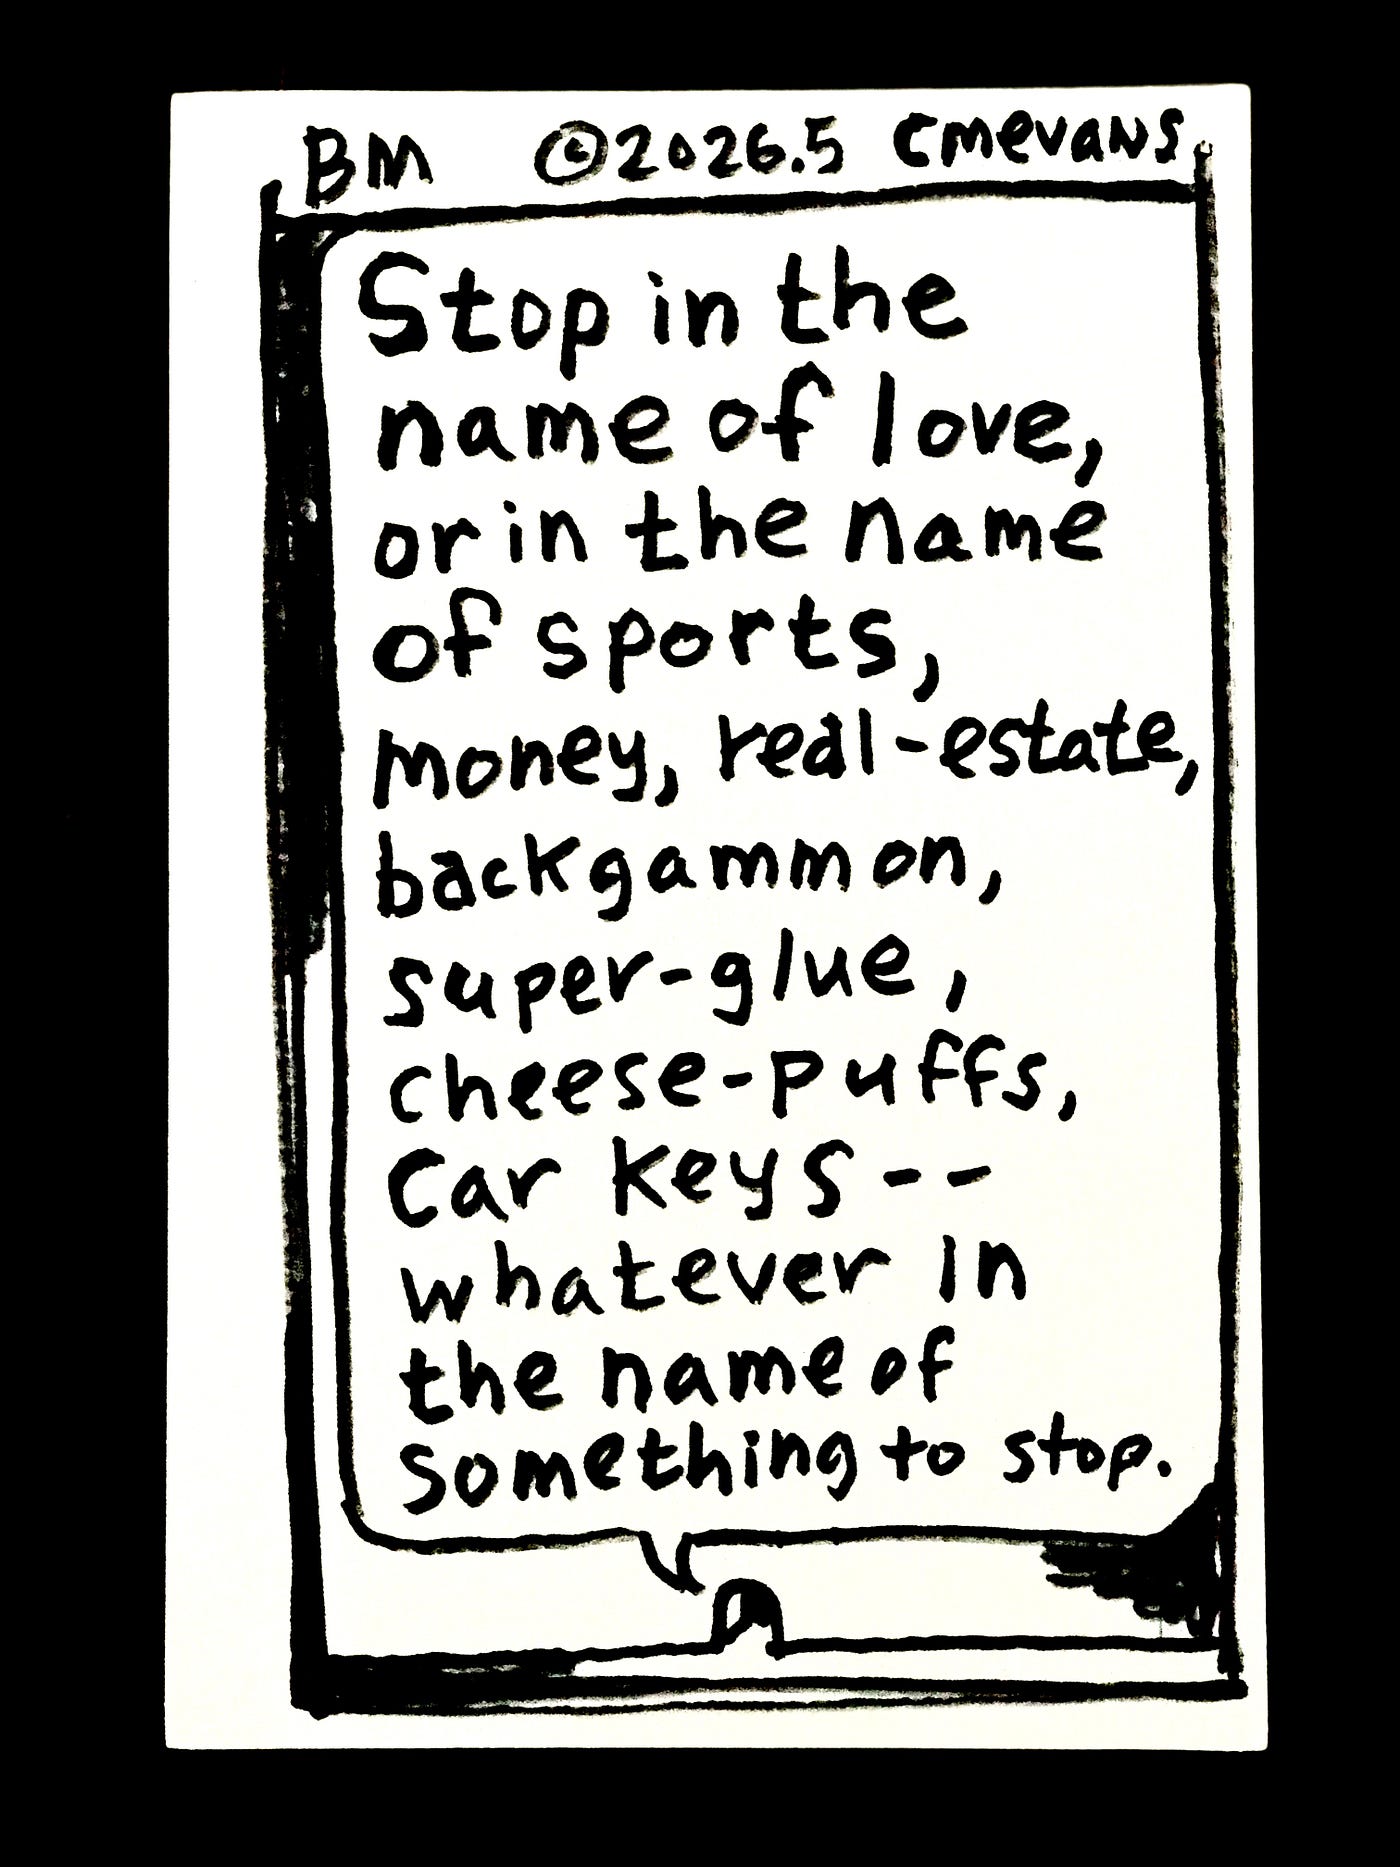 BM ©2026.5 cmevans
Stop in the
name of love,
or in the name
of sports,
money, real-estate,
backgammon,
super-glue,
cheese-puffs,
Car keys--
whatever in
the name of
something to stop.